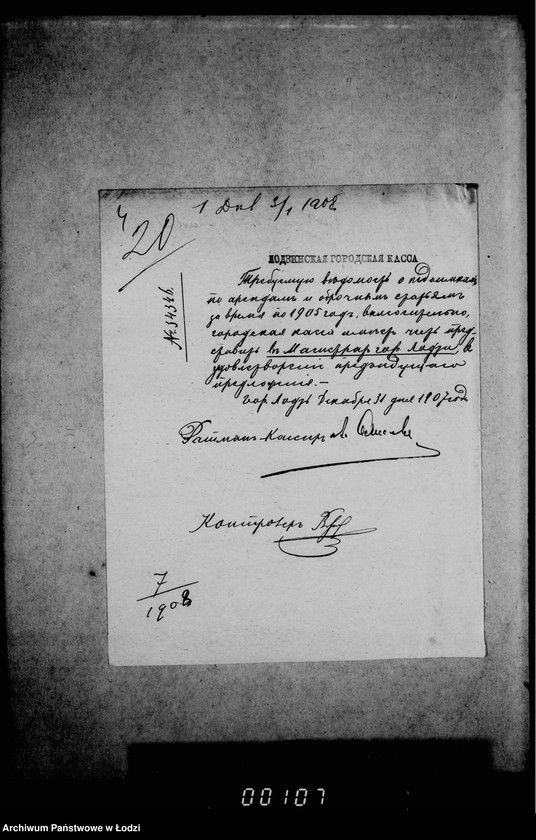 4
20
1 Дѣл 3/1 1908.
№ 54346.
ЛОДЗИНСКАЯ ГОРОДСКАЯ КАССА
Требуемую вѣдомость о недоимкахъ
по арендамъ и оброчнымъ статьямъ
за время по 1905 годъ, включительно,
городская касса имѣетъ честь пред-
ставить въ Магистратъ гор. Лодзи, въ
удовлетвореніи предъидущаго
предложенія. —
Гор. Лодзь Декабря 31 дня 1907 года
Ратманъ-Кассиръ
Контролеръ
7
1908
00107
Archiwum Państwowe w Łodzi